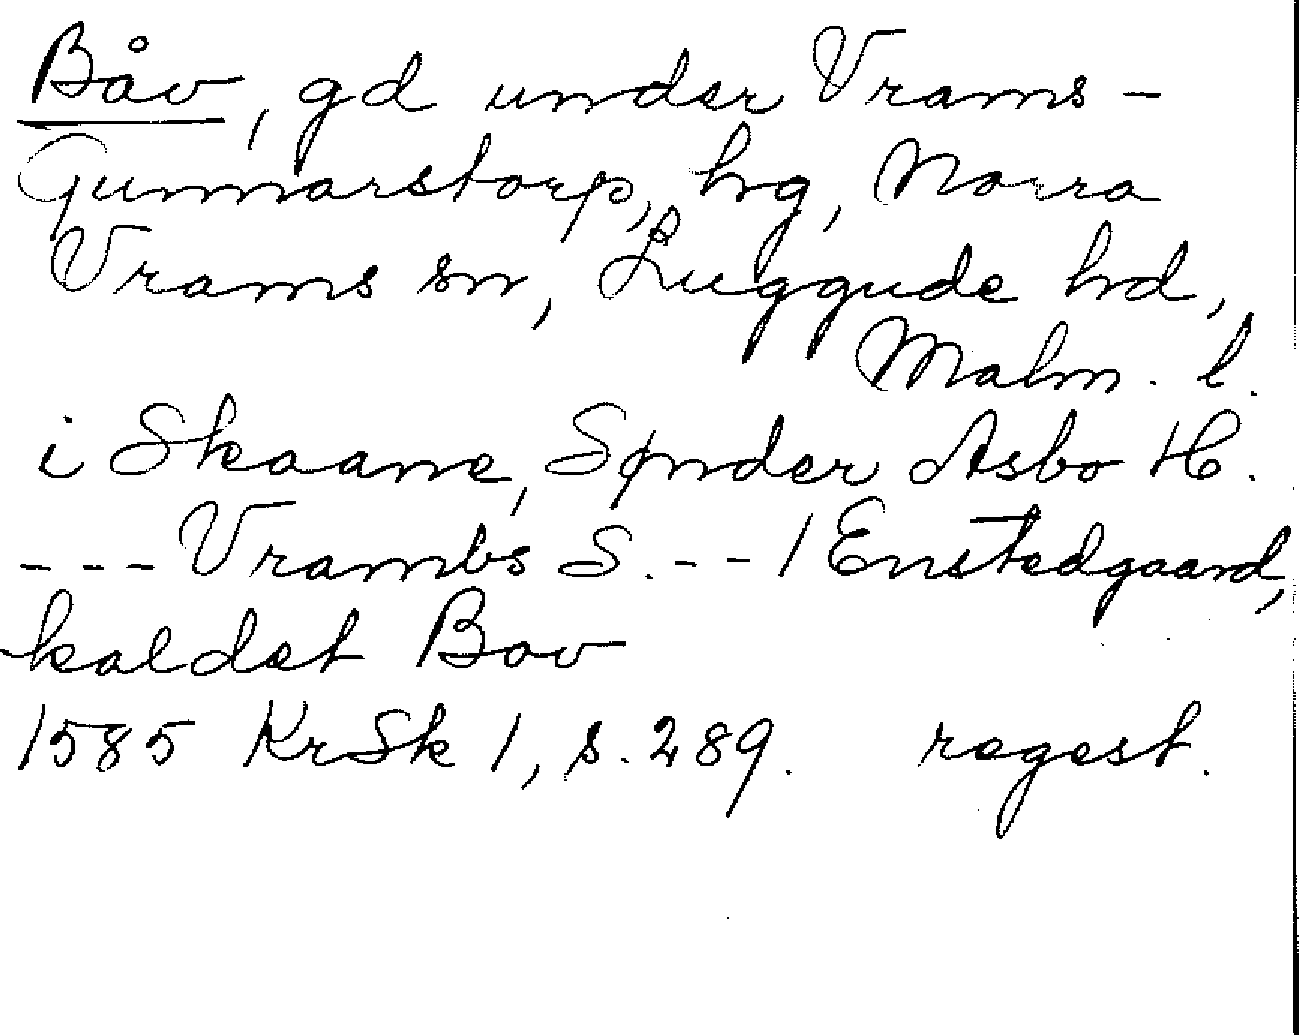 Båv, gd under Vrams-
Gunnarstorp, hg, Norra
Vrams sn, Luggude hd,
Malm. l.
i Skaane, Sønder Asbo H.
--- Vrambs S. -- 1 Enstedgaard,
kaldet Bov
1585 KrSk 1, s. 289. regest.